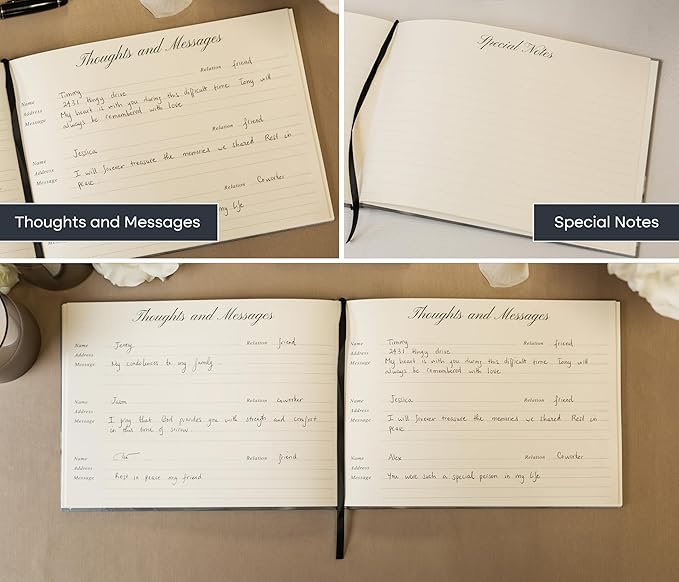 Thoughts and Messages
Relation friend
Name Timmy
Address 2431 thngy drive
Message My heart is with you during this difficult time Tony will
always be remembered with love
Relation friend
Name Jessica
Address
Message I will forever treasure the memories we shared Rest in
peace
Relation Coworker
my life
Thoughts and Messages
Special Notes
Special Notes
Thoughts and Messages
Name Jenny Relation friend
Address
Message My condolences to my family
Name Jason Relation coworker
Address
Message I pray that God provides you with strength and comfort
in this time of sorrow
Name Relation friend
Address
Message Rest in peace my friend
Thoughts and Messages
Name Timmy Relation friend
Address 2431 thngy drive
Message My heart is with you during this difficult time Tony will
always be remembered with love
Name Jessica Relation friend
Address
Message I will forever treasure the memories we shared Rest in
peace
Name Alex Relation Coworker
Address
Message You were such a special person in my life